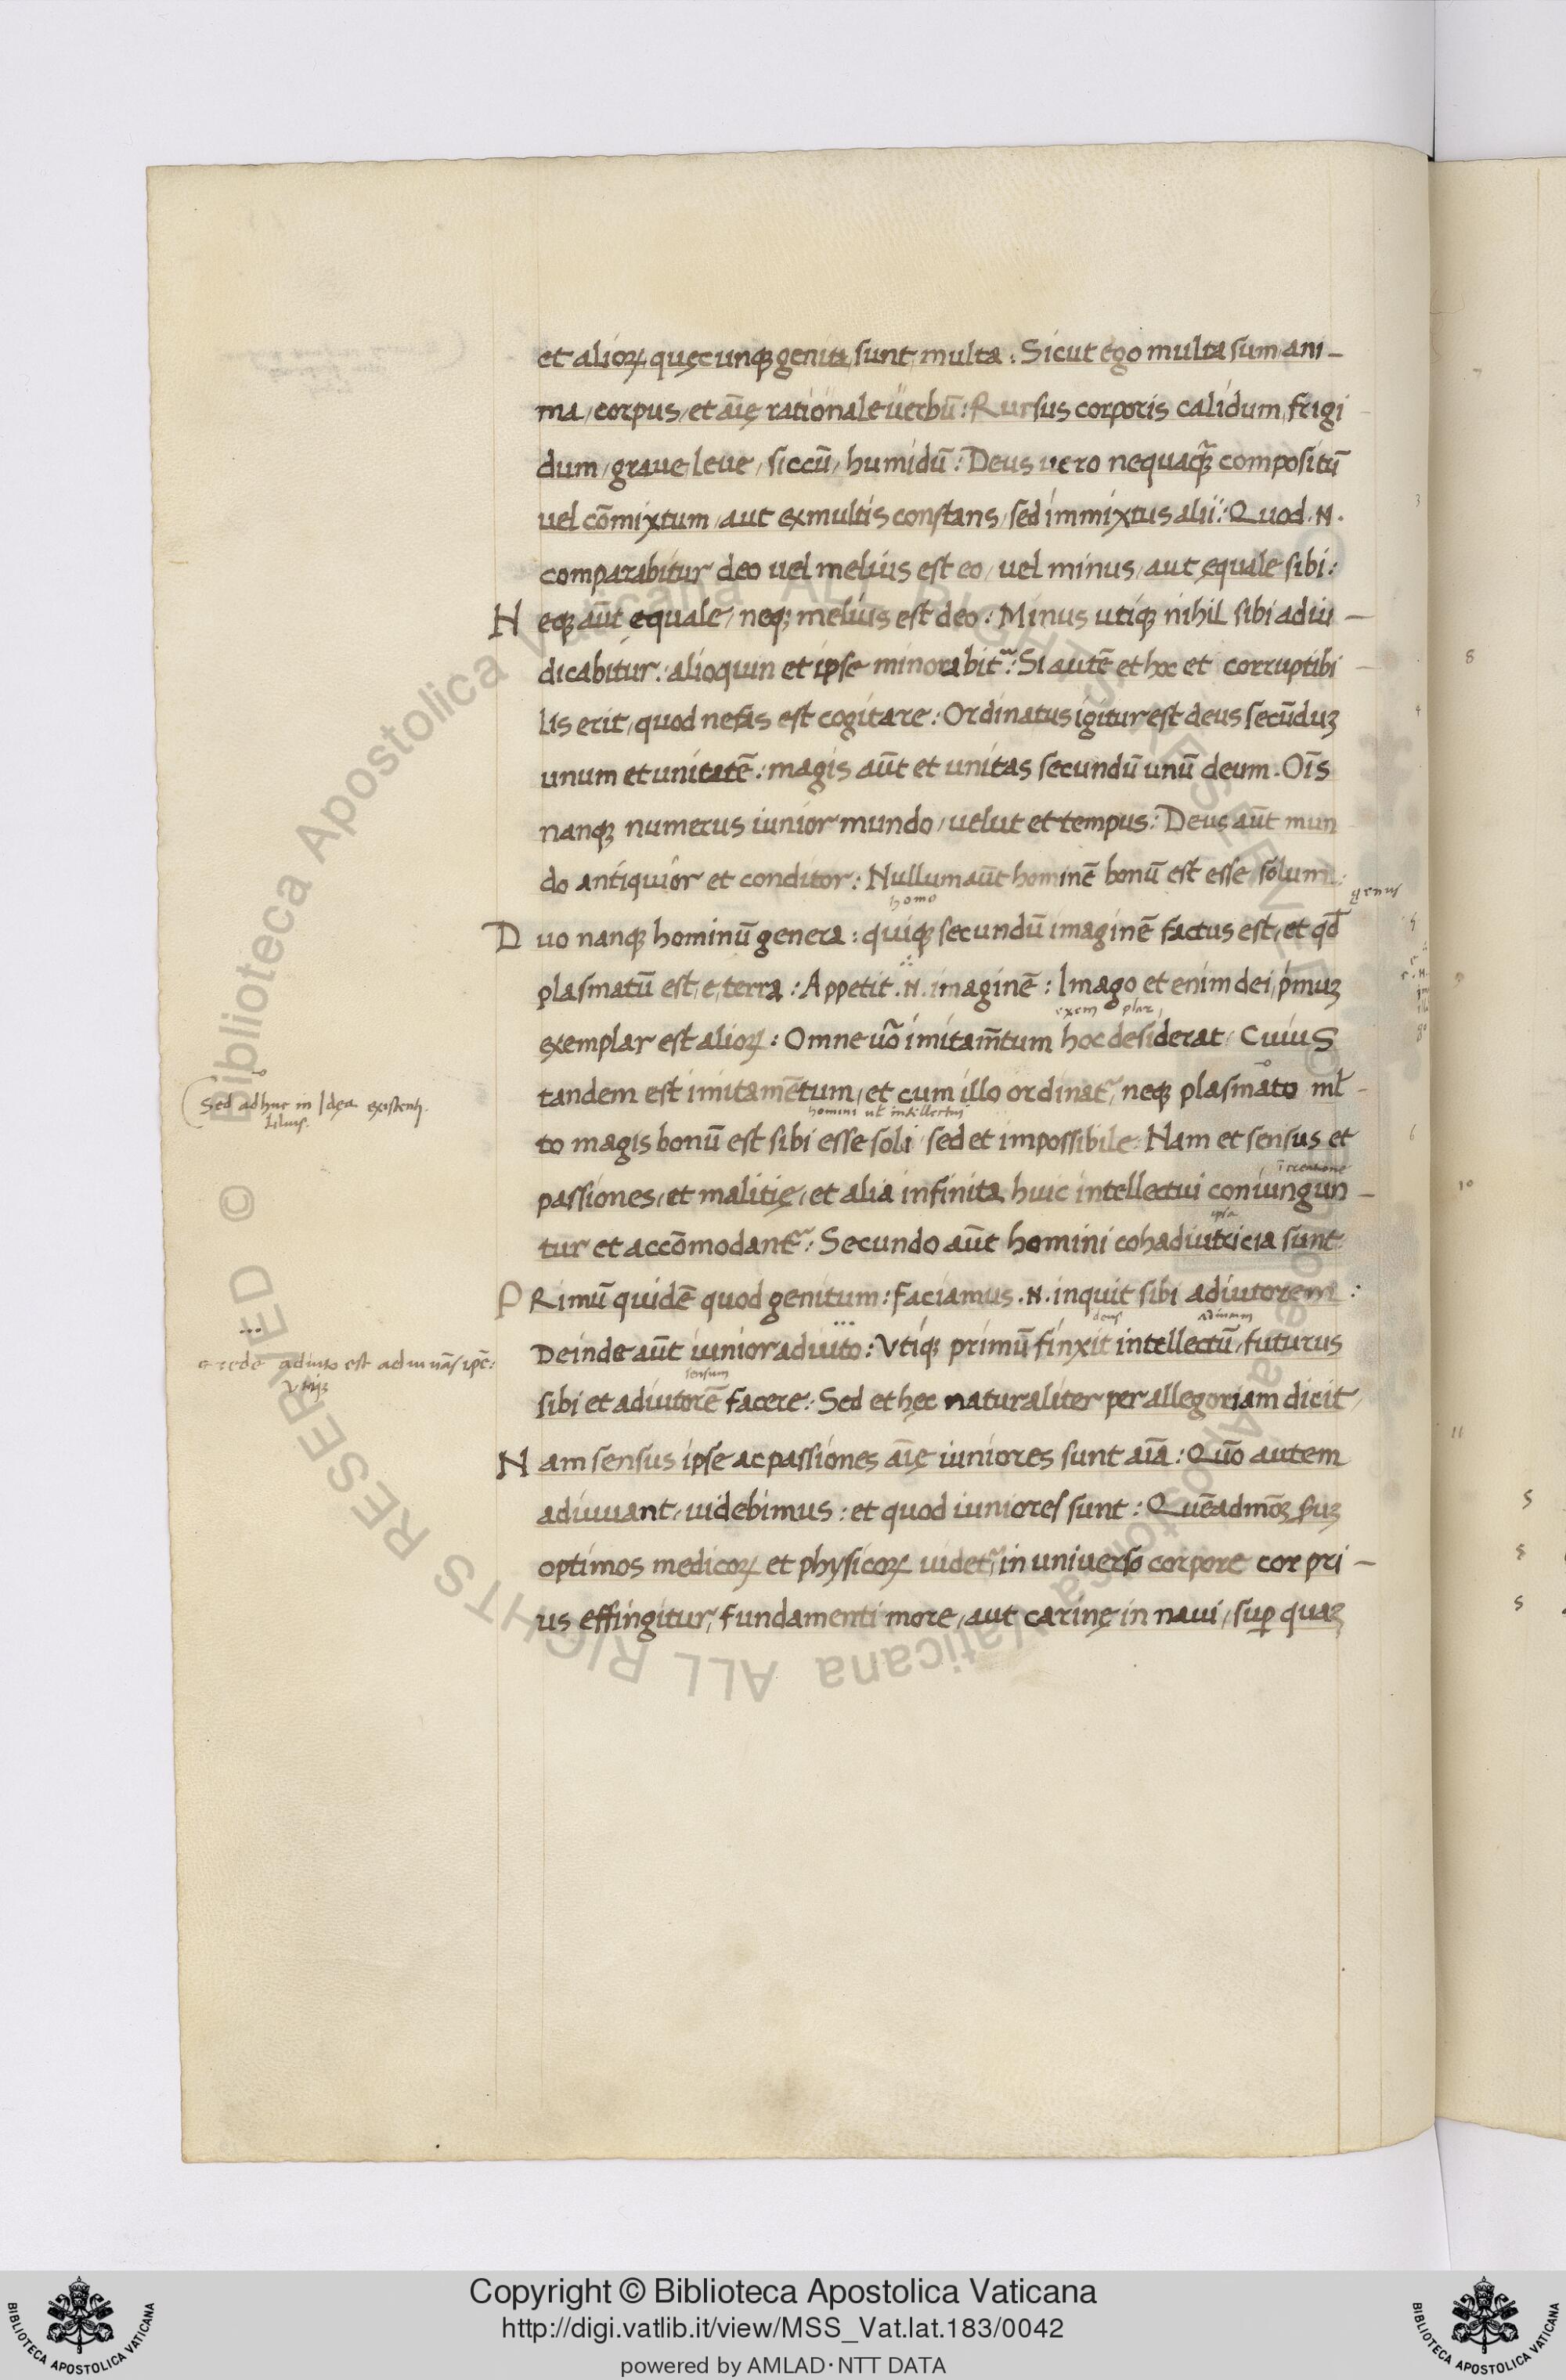 et alioꝝ quęcunqꝫ genita sunt, multa : Sicut ego multa sum, ani-
ma, corpus, et aīę rationale uerbū : Rursus corporis calidum, frigi
dum, graue, leue, siccū, humidū : Deus uero nequaqꝫ compositū
uel cōmixtum, aut ex multis constans, sed immixtus alii : Quod .N.
comparabitur deo uel melius est eo, uel minus, aut ęquale sibi :
Neqꝫ aūt equale, neqꝫ melius est deo : Minus utiqꝫ nihil sibi adiu-
dicabitur : alioquin et ipse minorabit᷑ : Si autē et hoc et corruptibi-
lis erit, quod nefas est cogitare : Ordinatus igitur est deus secūduꝫ
unum et unitatē : magis aūt et unitas secundū unū deum. Oīs
nanqꝫ numerus iunior mundo, uelut et tempus : Deus aūt mun
do antiquior et conditor : Nullum aūt hominē bonū est esse solum :
homo
genus
Duo nanqꝫ hominū genera : quiqꝫ secundū imaginē factus est, et qđ
plasmatū est, e, terra : Appetit .N. imaginē : Imago et enim dei, pͥmuꝫ
exem plar,
exemplar est alioꝝ : Omne uō imitam̄tum hoc desiderat, Cuius
tandem est imitamētum, et cum illo ordinat᷑, neqꝫ plasmato ml̄-
Sed adhuc in Idęa existenti.
homini ul̄ intellectui
to magis bonū est sibi esse soli, sed et impossibile : Nam et sensus et
ī creatione
passiones, et malitię, et alia infinita huic intellectui coniungun-
ipsa
tur et accōmodant᷑ : Secundo aūt homini cohadiutricia sunt
PRimū quidē quod genitum : faciamus .N. inquit sibi adiutorem :
deus
Deinde aūt iunior adiuto : Vtiqꝫ primū finxit intellectū, futurus
crede adiuto est adiuuās ipē :
Vtiqꝫ
sensum
sibi et adiutorē facere : Sed et hęc naturaliter per allegoriam dicit,
Nam sensus ipse ac passiones aīę iuniores sunt aīā : Quō autem
adiuuant, uidebimus : et quod iuniores sunt : Quēadmōꝫ puꝫ
optimos medicoꝝ et physicoꝝ uidet᷑, in uniuerso corpore cor pri-
us effingitur, fundamenti more, aut carinę in naui, suꝑ quaꝫ
Copyright © Biblioteca Apostolica Vaticana
http://digi.vatlib.it/view/MSS_Vat.lat.183/0042
powered by AMLAD·NTT DATA